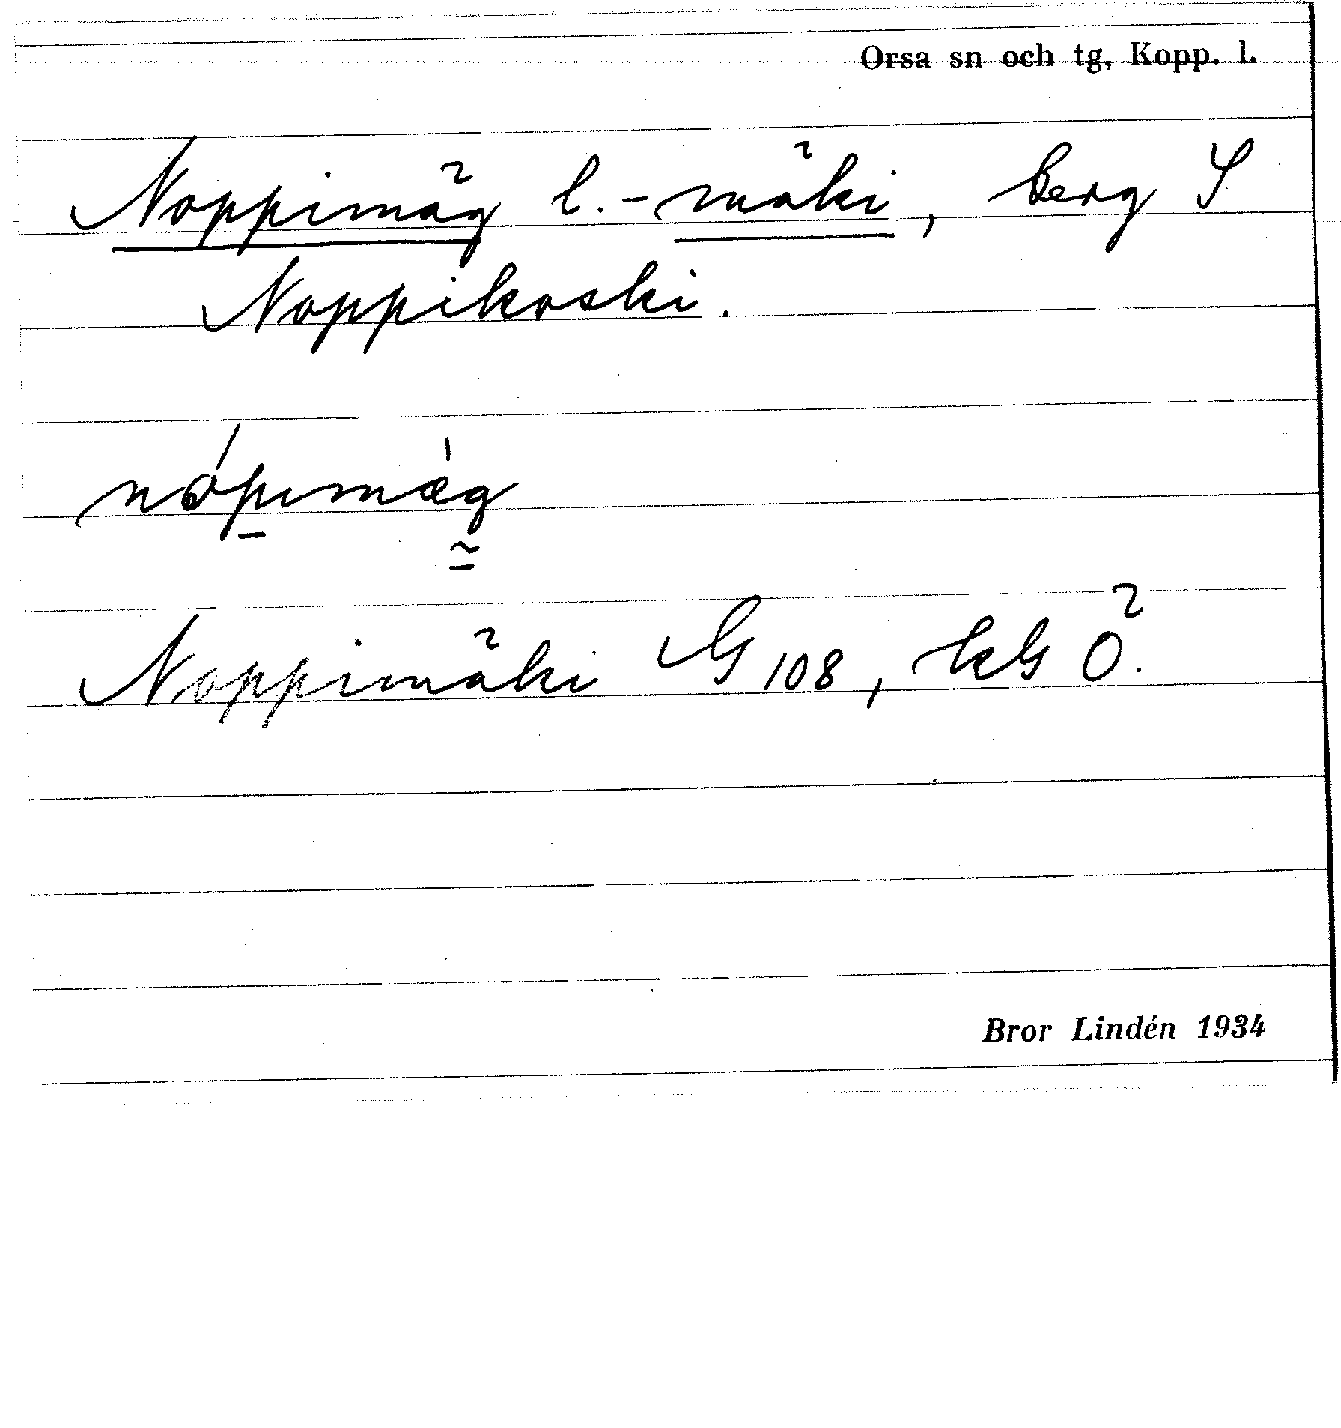 Orsa sn och tg, Kopp. l.
Noppimäg l. -mäki, berg S
Noppikoski.
Noppimäki G 108, kG Ö.
Bror Lindén 1934